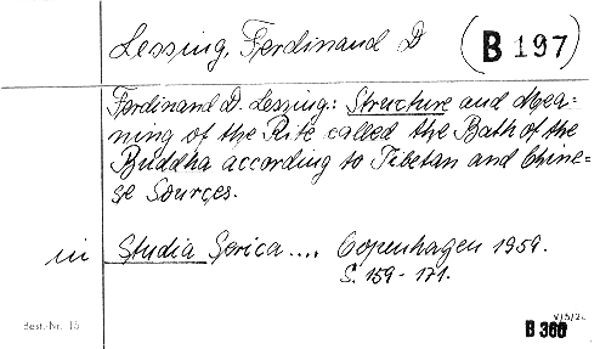 Lessing, Ferdinand D (B 197)
Ferdinand D. Lessing: Structure and Mea=
ning of the Rite called the Bath of the
Buddha according to Tibetan and Chine=
se Sources.
in Studia Serica .... Copenhagen 1959.
S. 159-171.
Best.-Nr. 15
B 360